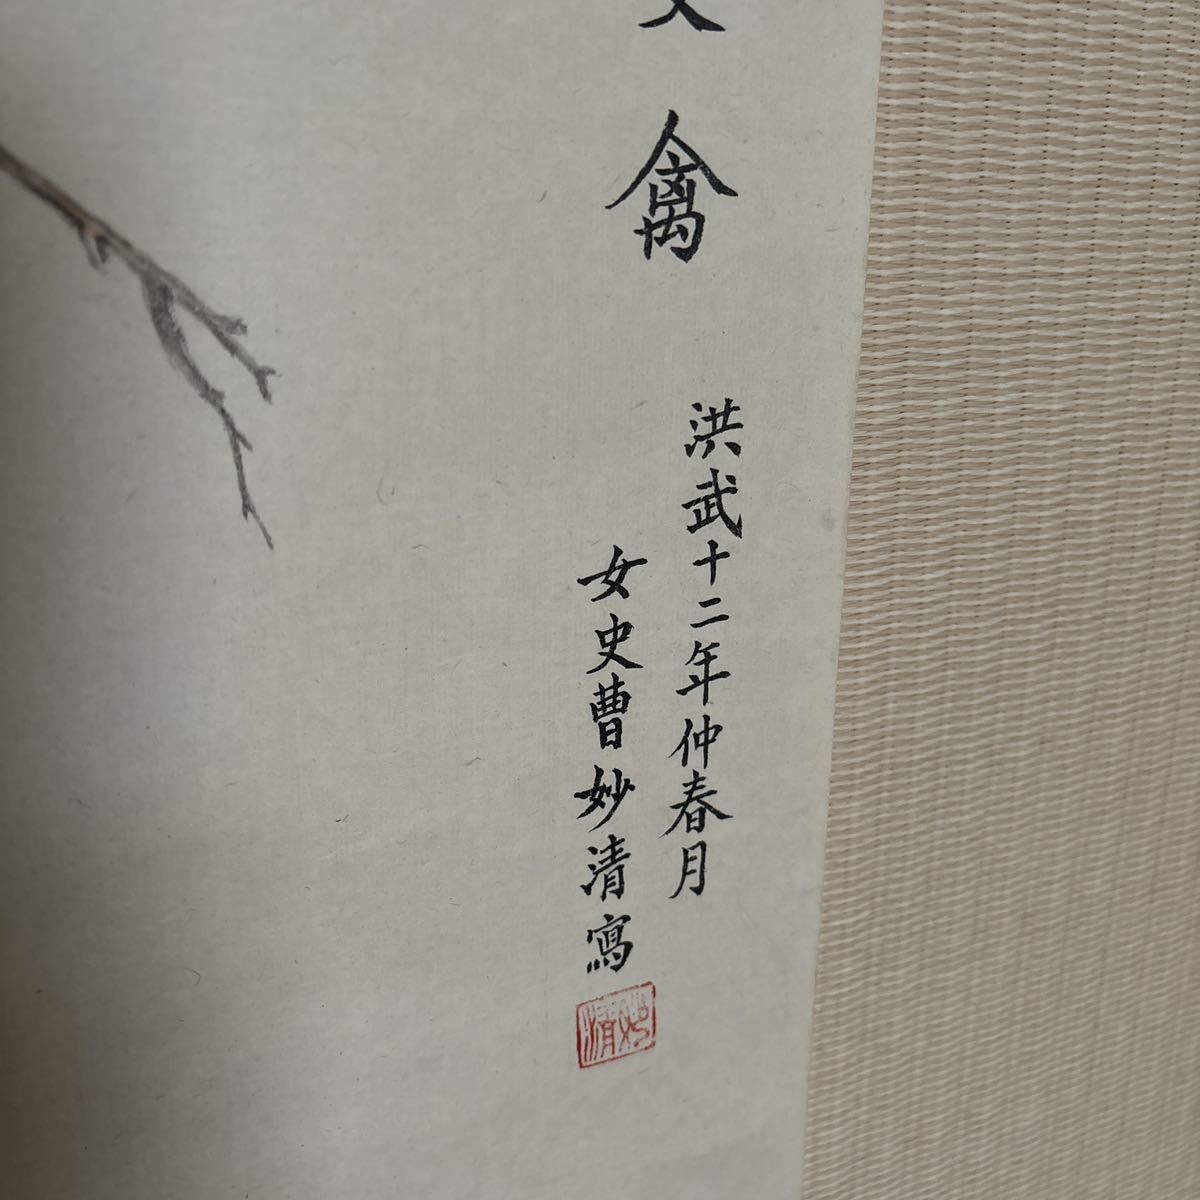 禽
洪武十二年仲春月
女史曹妙清寫
妙清